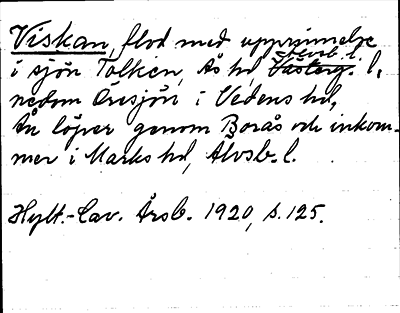 Viskan, flod med upprinnelse
i sjön Tolken, Ås hd, Älvsb. l.
nedom Öresjön i Vedens hd,
Ån löper genom Borås och inkom-
mer i Marks hd, Älvsb. l.
Hylt.-Cav. Årsb. 1920, s. 125.